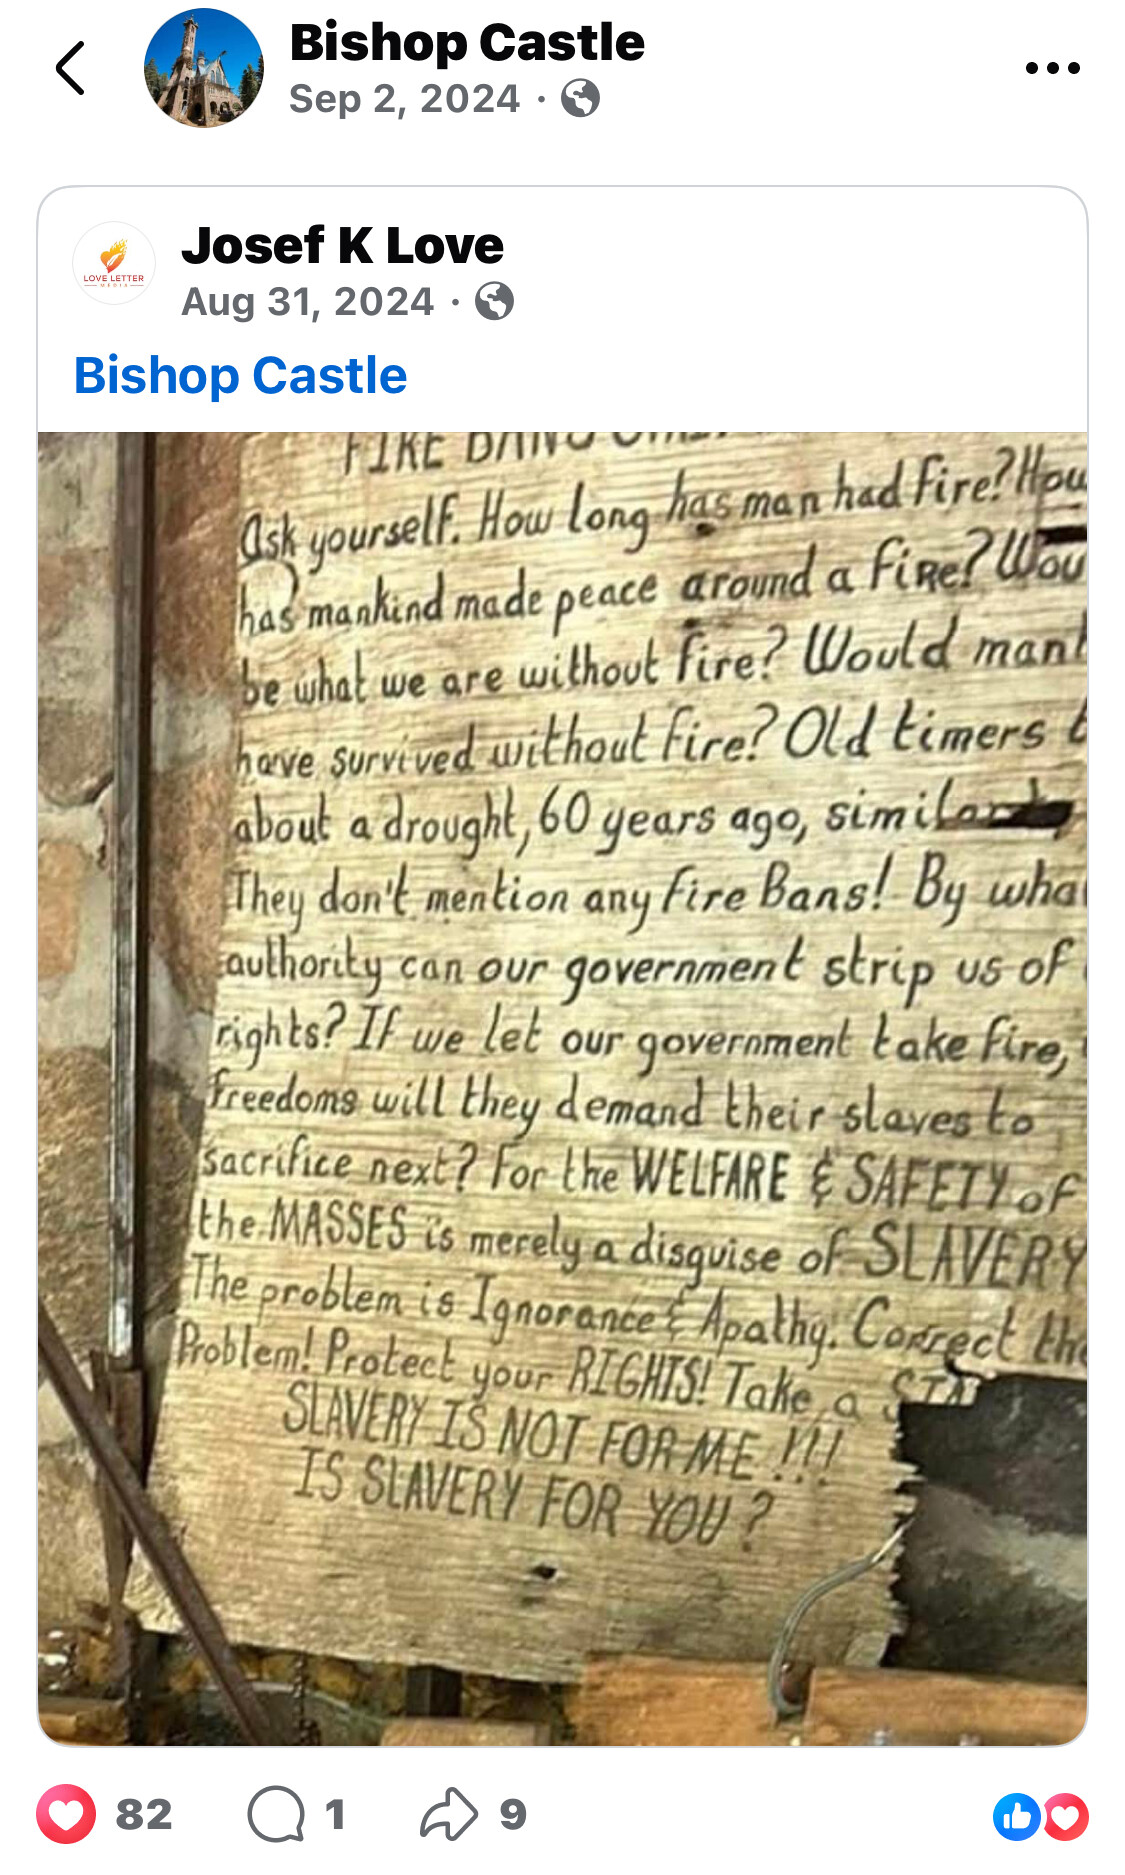 Bishop Castle
Sep 2, 2024 ·
LOVE LETTER
MEDIA
Josef K Love
Aug 31, 2024 ·
Bishop Castle
FIRE
Ask yourself. How long has man had fire? How
has mankind made peace around a fire? Wou
be what we are without fire? Would man
have survived without fire? Old timers t
about a drought, 60 years ago, similar
They don't mention any fire Bans! By wha
authority can our government strip us of
rights? If we let our government take fire,
freedoms will they demand their slaves to
sacrifice next? For the WELFARE & SAFETY of
the MASSES is merely a disguise of SLAVERY
The problem is Ignorance & Apathy. Correct the
Problem! Protect your RIGHTS! Take a
SLAVERY IS NOT FOR ME !!!
IS SLAVERY FOR YOU ?
82 1 9